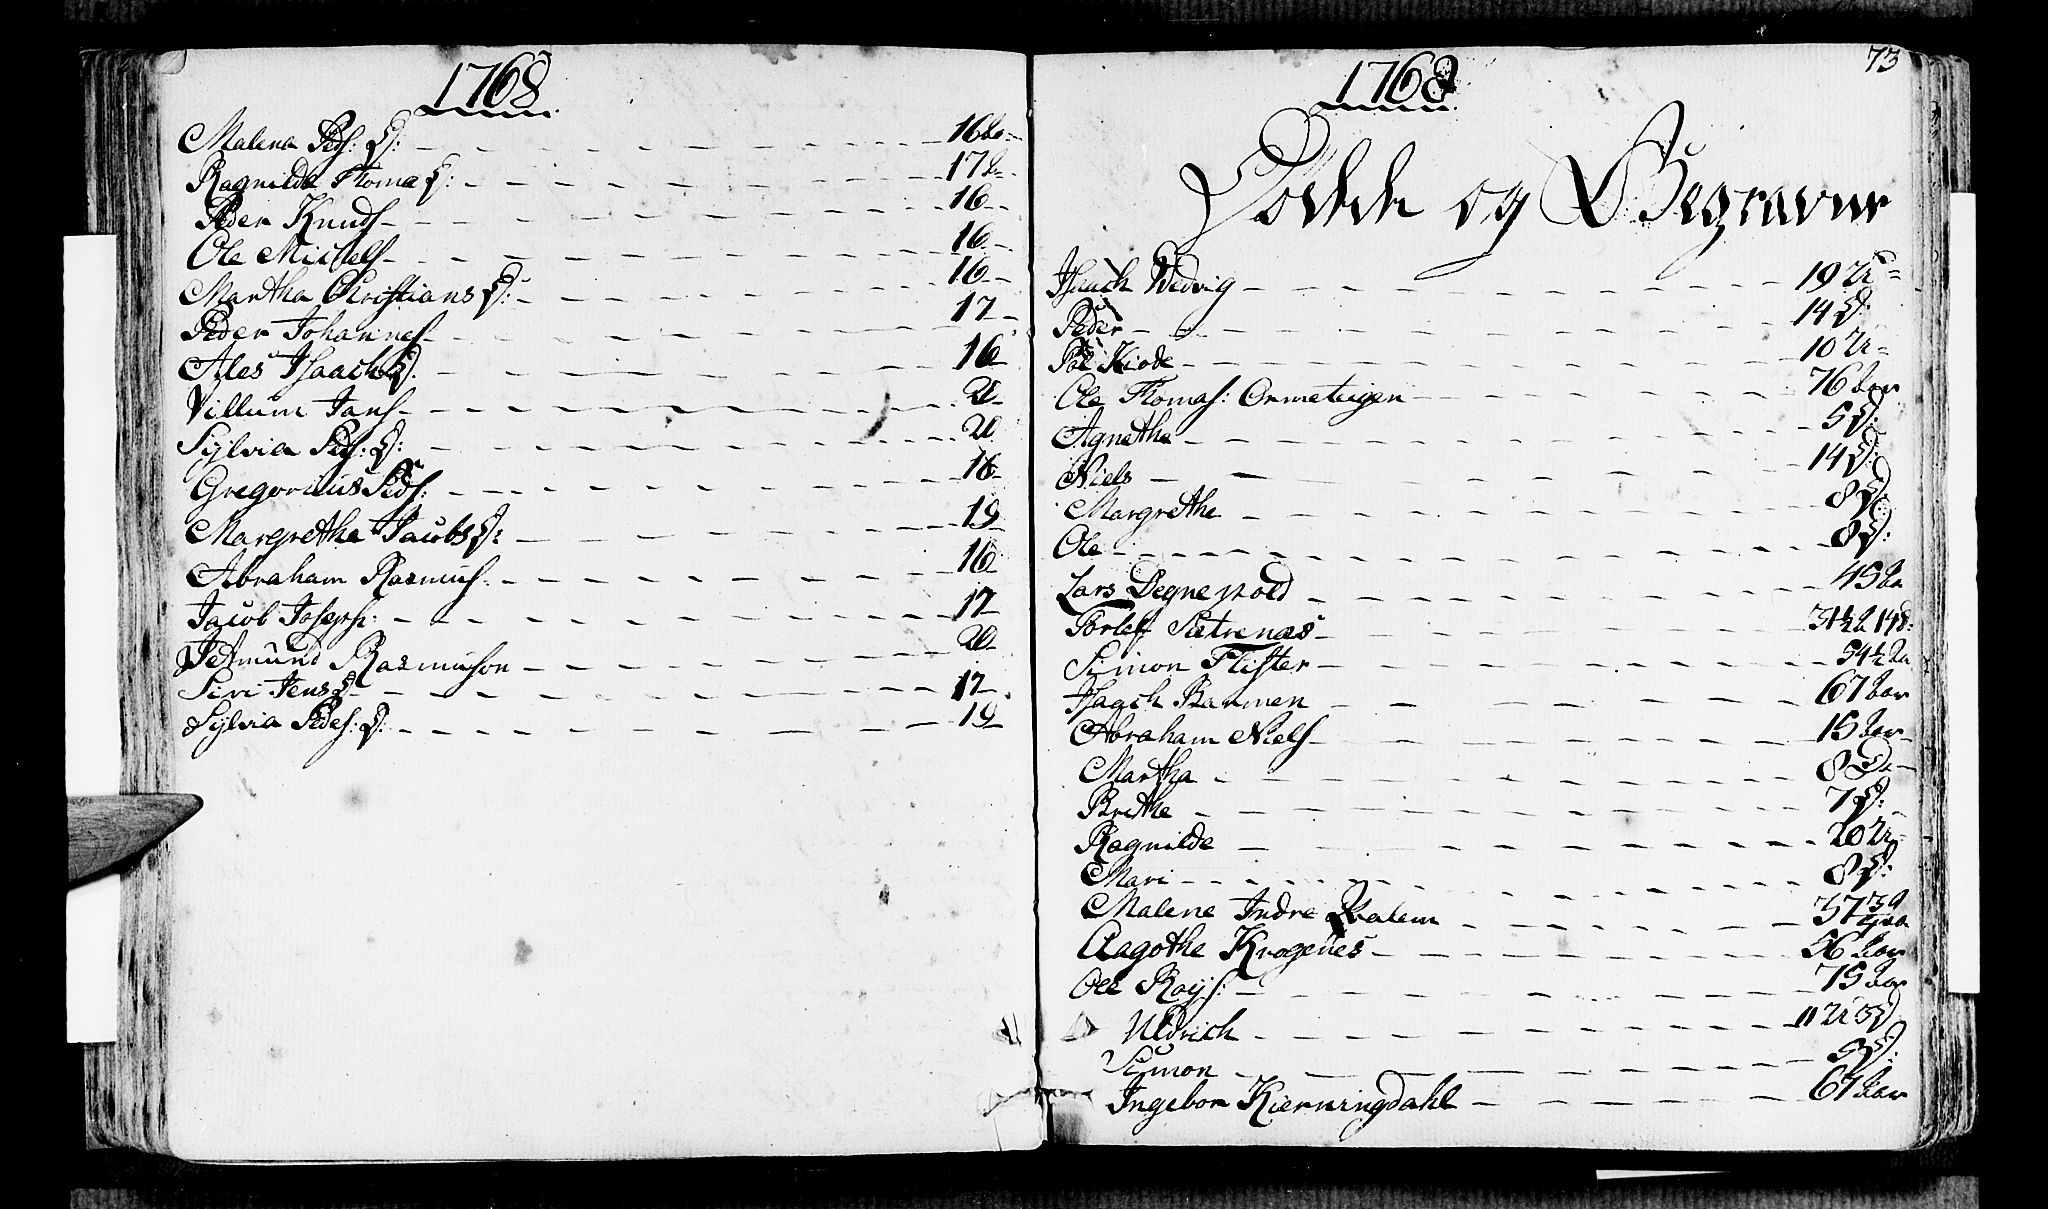 1768
Malena Peds: D: 16 ba
Ragnilde Thomæ D: 17 b
Peder Knuds 16
Ole Michels 16
Martha Christians D: 16
Peder Johannes 17
Ales Isaachs D: 16
Villum Jans 20
Sylvia Peds: D: 20
Gregorius Peds: 16
Margrethe Jacobs D: 19
Abraham Rasmus: 16
Jacob Joseph: 17
Amund Rasmuson 20
Siri Jens D 17
Sylvia Peders: D: 19
1768
73
Döde og Begravne
Isaach Hedvig 19 U
Peder 14 D:
Kiode 10 U
Ole Thomas: Ormeteigen 76 aar
Agnethe 5 D:
Niels 14 D:
Margrethe 8 D:
Ole 8 D:
Lars Degnepold 45 aa
Torlef Sætrenæs 31½ a 14 D:
Simon Flister 54½ aa
Isaach Rammen 67 aar
Abraham Niels 15 aar
Martha 8 Da
Brithe 7 D:
Ragnilde 20 U
Mari 8 D:
Malene Indre 37
Aagothe Krogenes 56 aar
Ole Roys: 75 aar
Uldrich 11 U 3 D
Simon 3 D:
Ingebor Kierningdahl 67 aar